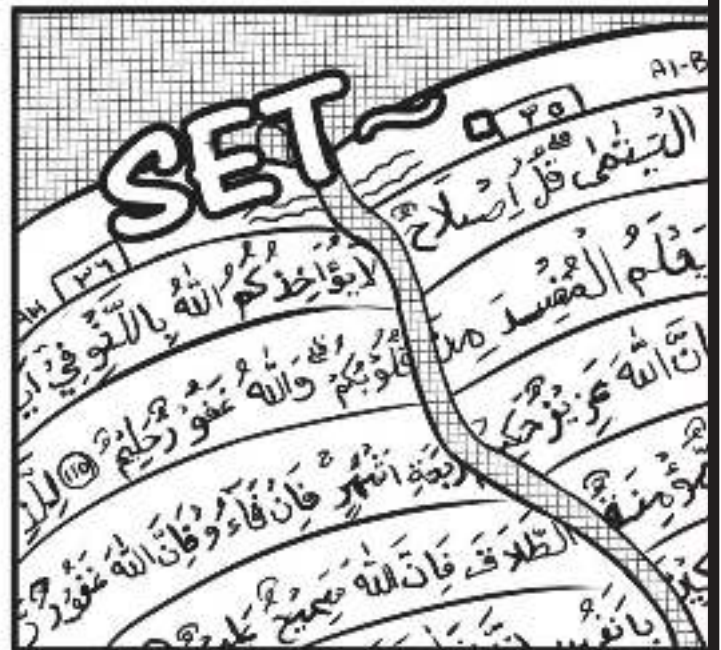 SET~
٣٥
اليَتٰمٰى قُلْ إِصْلَاحٌ
يَعْلَمُ الْمُفْسِدَ مِنَ
إِنَّ اللّٰهَ عَزِيزٌ حَكِيمٌ
٣٦
لَا يُؤَاخِذُكُمُ اللّٰهُ بِاللَّغْوِ فِيْ
قُلُوْبُكُمْ وَاللّٰهُ غَفُوْرٌ حَلِيْمٌ
اَرْبَعَةِ اَشْهُرٍ فَاِنْ فَاءُوْ فَاِنَّ اللّٰهَ غَفُوْرٌ
الطَّلَاقَ فَاِنَّ اللّٰهَ سَمِيْعٌ عَلِيْمٌ